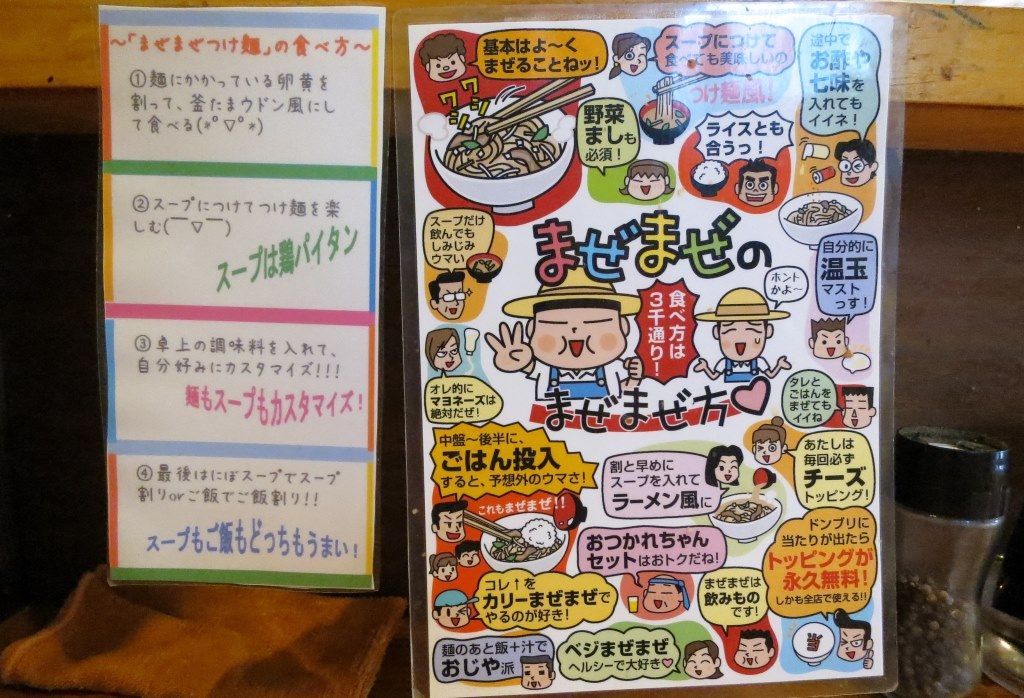 ～「まぜまぜつけ麺」の食べ方～
①麺にかかっている卵黄を
割って、釜たまウドン風にし
て食べる(*°▽°*)
②スープにつけてつけ麺を楽
しむ(￣▽￣)
スープは鶏パイタン
③卓上の調味料を入れて、
自分好みにカスタマイズ!!!
麺もスープもカスタマイズ!
④最後はにぼスープでスープ
割りorご飯でご飯割り!!
スープもご飯もどっちもうまい!
基本はよ～く
まぜることねッ!
ワシ
ワシ
スープにつけて
食べても美味しいの
つけ麺風!
途中で
お酢や
七味を
入れても
イイネ!
野菜
ましも
必須!
ライスとも
合うっ!
スープだけ
飲んでも
しみじみ
ウマい
まぜまぜの
自分的に
温玉
マスト
っす!
ホント
かよ～
食べ方は
3千通り!
オレ的に
マヨネーズは
絶対だぜ!
まぜまぜ方
タレと
ごはんを
まぜても
イイね
中盤～後半に、
ごはん投入
すると、予想外のウマさ!
これもまぜまぜ!!
割と早めに
スープを入れて
ラーメン風に
あたしは
毎回必ず
チーズ
トッピング!
おつかれちゃん
セットはおトクだね!
ドンブリに
当たりが出たら
トッピングが
永久無料!
しかも全店で使える!!
コレ↑を
カリーまぜまぜで
やるのが好き!
まぜまぜは
飲みもの
です!
当
麺のあと飯+汁で
おじや派
ベジまぜまぜ
ヘルシーで大好き♡